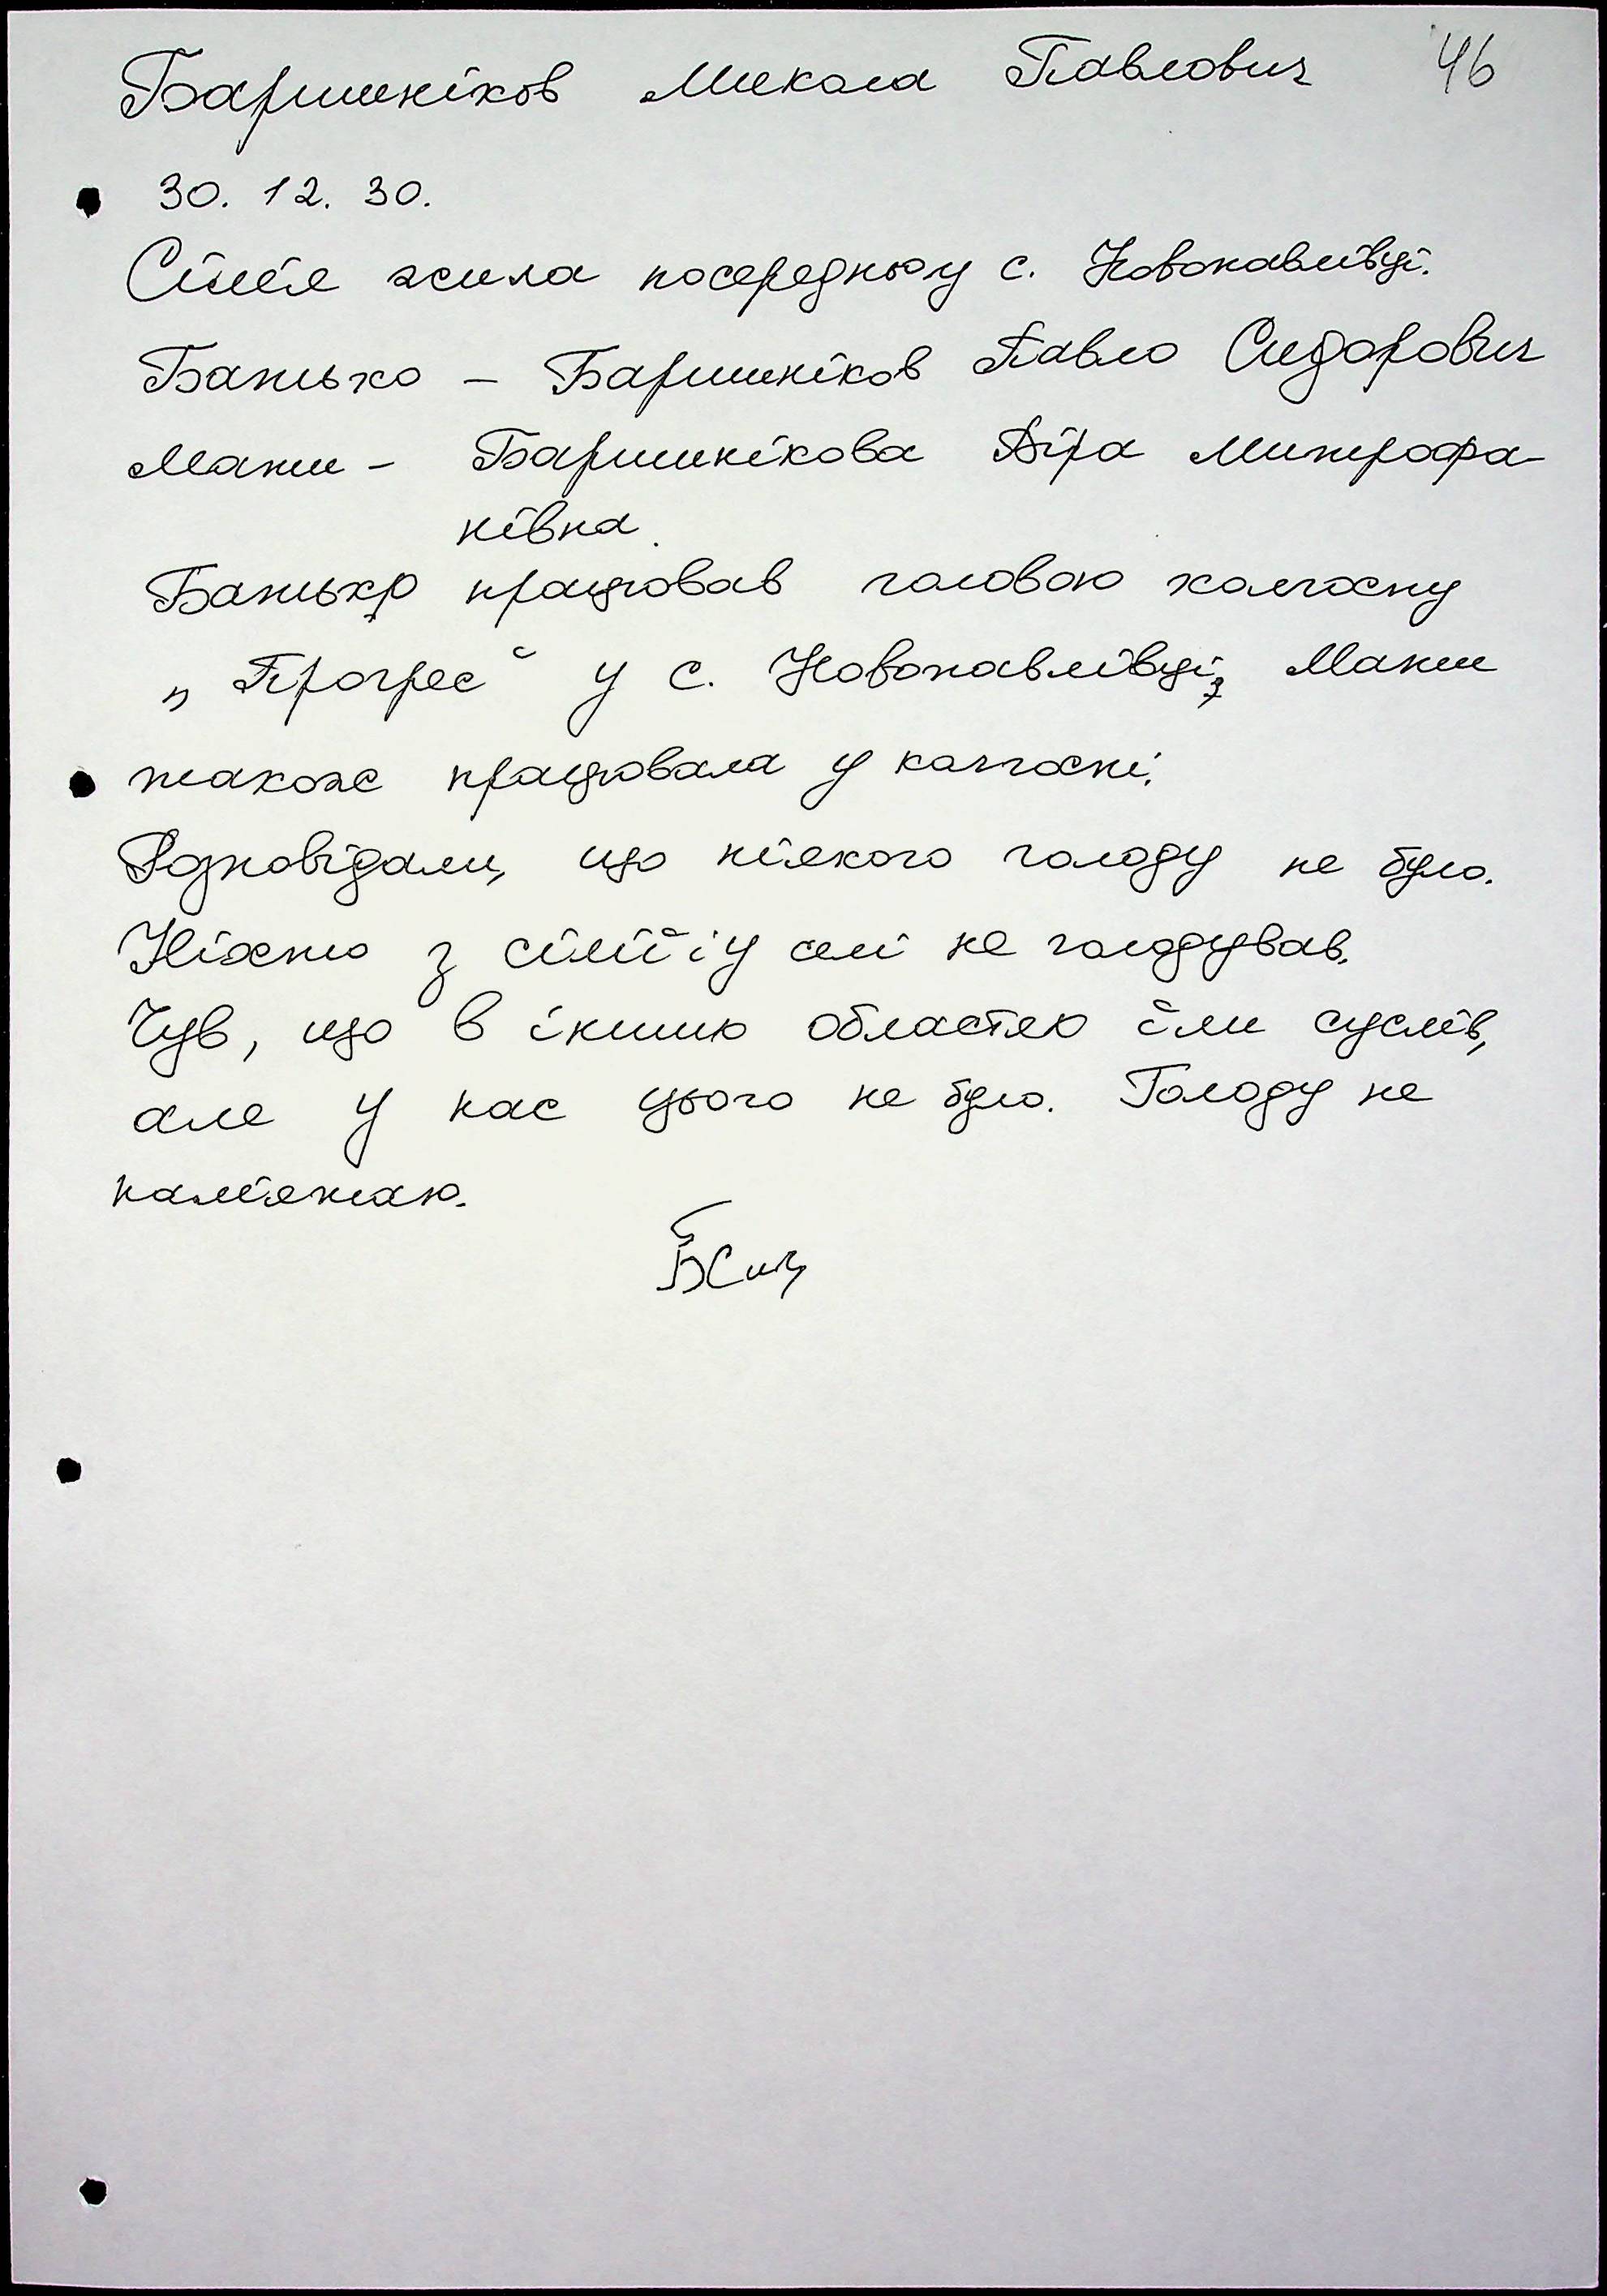 Баришніков Микола Павлович 46
30. 12. 30.
Сім'я жила посередньо у с. Новопавлівці.
Батько – Баришніков Павло Сидорович
Мати – Баришнікова Віра Митрофа-
нівна.
Батько працював головою колгоспу
„Прогрес" у с. Новопавлівці, Мати
також працювала у колгоспі.
Розповідали, що ніякого голоду не було.
Ніхто з сім'ї і у селі не голодував.
Чув, що в інших областях їли суслів,
але у нас цього не було. Голоду не
пам'ятаю.